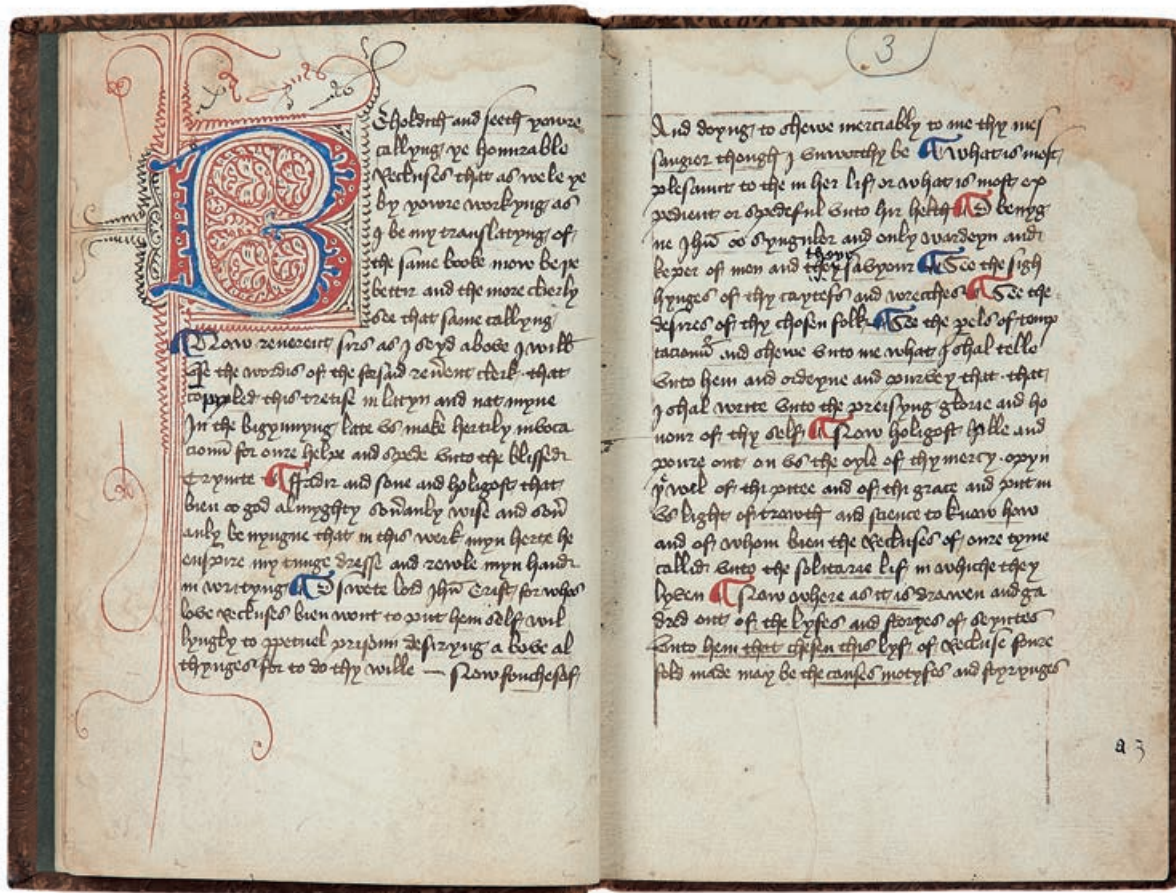 Beholdeth and seeth yowre
callyng ye honurable
Recluses that as wele ye
by yowre workyng as
I be my translatyng of
the same booke mow be ye
bettir and the more cleerly
see that same callyng
¶ Now reuerent sirs as I seyd above I wilk
vse the wordis of the forsaid reu͛ent clerk that
compyled this tretise in latyn and nat myne
In the bigynnyng late vs make hertily invoca
cioun for oure helpe and spede vnto the blissed
Trynite ¶ Fadir and sone and holigost that
bien oo god almyghty sou͛anly wise and sou͛
anly benyngne that in this werk myn herte he
enspire my tunge dresse and rewle myn hand
in writyng ¶ O swete lord Jhu Crist for whos
love Recluses bien wont to put hem self wil
lyngly to ppetuel prisoun desiryng a bove al
thynges for to do thy wille — Now fouchesaf
3
And doyng to shewe merciably to me thy mes
saugier though I vnworthy be ¶ What is most
plesaunt to the in her lif or what is most ex
pedient or spedeful vnto hir helth ¶ O benyg
ne Jhu oo synguler and only wardeyn and
keper of men and theyr savyour ¶ See the sigh
hynges of thy caytefs and wrecches ¶ See the
desires of thy chosen folk ¶ See the pels of temp
tacioun and shewe vnto me what I shal telle
vnto hem and ordeyne and purvey that that
I shal write vnto the preisyng glorie and ho
nour of thy self ¶ Now holigost hille and
poure out on vs the oyle of thy mercy opyn
yͤ wel of thi pitee and of thi grace and putt in
vs light of trowth and science to know how
and of whom bien the Recluses of oure tyme
callid vnto the solitarie lif in whiche they
lyven ¶ Now where as it is drawen and ga
dred out of the lyfes and storyes of seyntes
vnto hem that chesen this lyf of Recluse foure
fold made may be the causes motyfes and styrynges
a 3